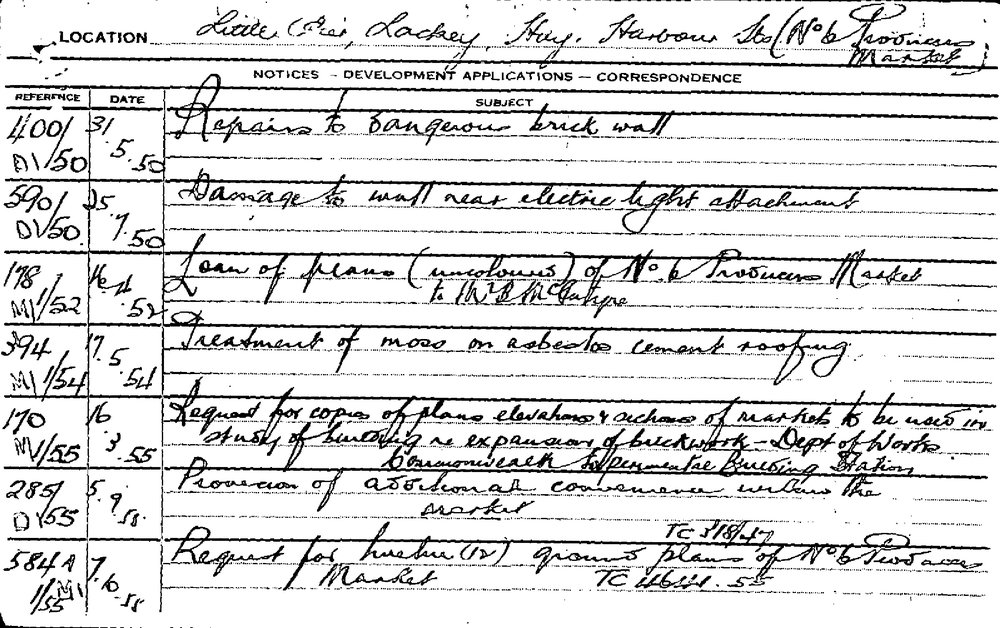 LOCATION Little Pier, Lackey, Hay, Harbour Sts (No 6 Producers
Market)
NOTICES - DEVELOPMENT APPLICATIONS - CORRESPONDENCE
REFERENCE DATE SUBJECT
400/ 31 Repairs to dangerous brick wall
D1/50 .5.50
590/ 25. Damage to wall near electric light attachment
D1/50 7.50
178/ 16 Loan of plans (uncoloured) of No. 6 Producers Market
M1/52 .52 to Mr B
394 17 Treatment of moss on asbestos cement roofing
M1/54 .5.54
170 16 Request for copies of plans elevations & sections of market to be used in
/55 3.55 study of building re expansion of brickwork - Dept of Works
Commonwealth Experimental Building Station
285/ 5. Provision of additional convenience within the
D1/55 9.55. market
TC 318/47
584A 7. Request for twelve (12) ground plans of No 6 Producers
1/55 M1 10.55 Market TC .55